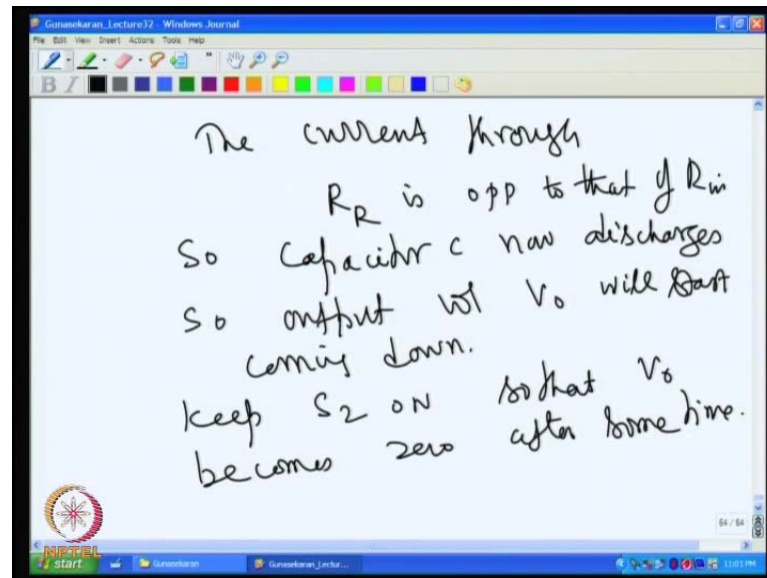 Gunasekaran_Lecture32 - Windows Journal
File Edit View Insert Actions Tools Help
B I
The current through
R_R is opp to that of R in
So Capacitor c now discharges
So output vol V_o will start
coming down.
keep S_2 ON so that V_o
becomes zero after some time.
64 / 64
NPTEL
start Gunasekaran Gunasekaran_Lectur... 11:01 PM